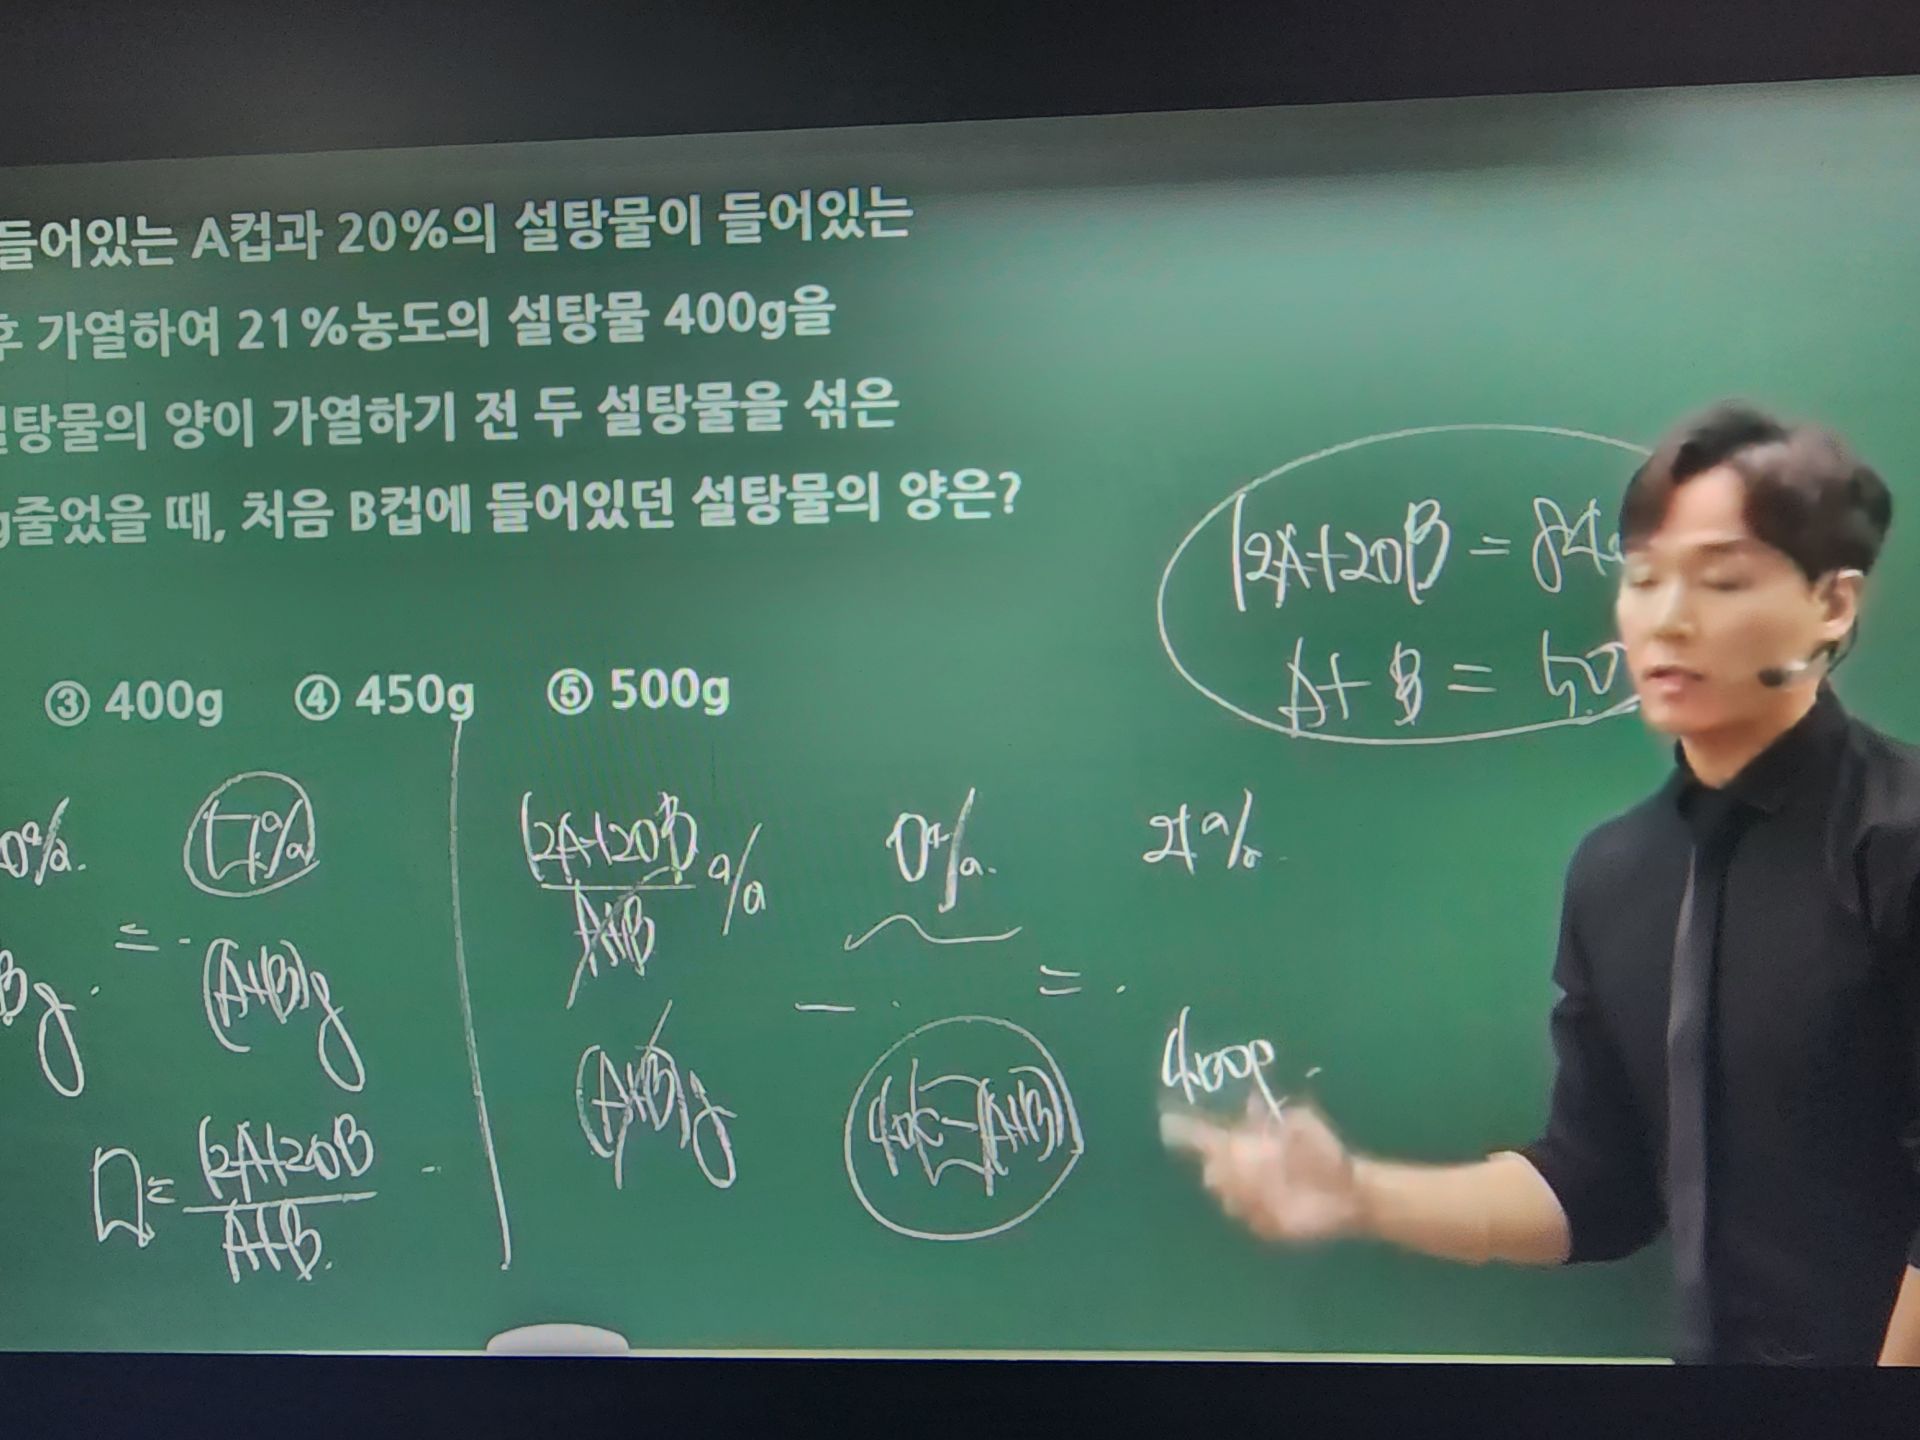 들어있는 A컵과 20%의 설탕물이 들어있는
후 가열하여 21%농도의 설탕물 400g을
설탕물의 양이 가열하기 전 두 설탕물을 섞은
g줄었을 때, 처음 B컵에 들어있던 설탕물의 양은?
③ 400g ④ 450g ⑤ 500g
12A+20B = 84
A+B = 50
0%
12A+20B
A+B
%
0%
21%
=
(A+B)g
Bg
(A+B)g
−
400-(A+B)
=
400g
□=
12A+20B
A+B